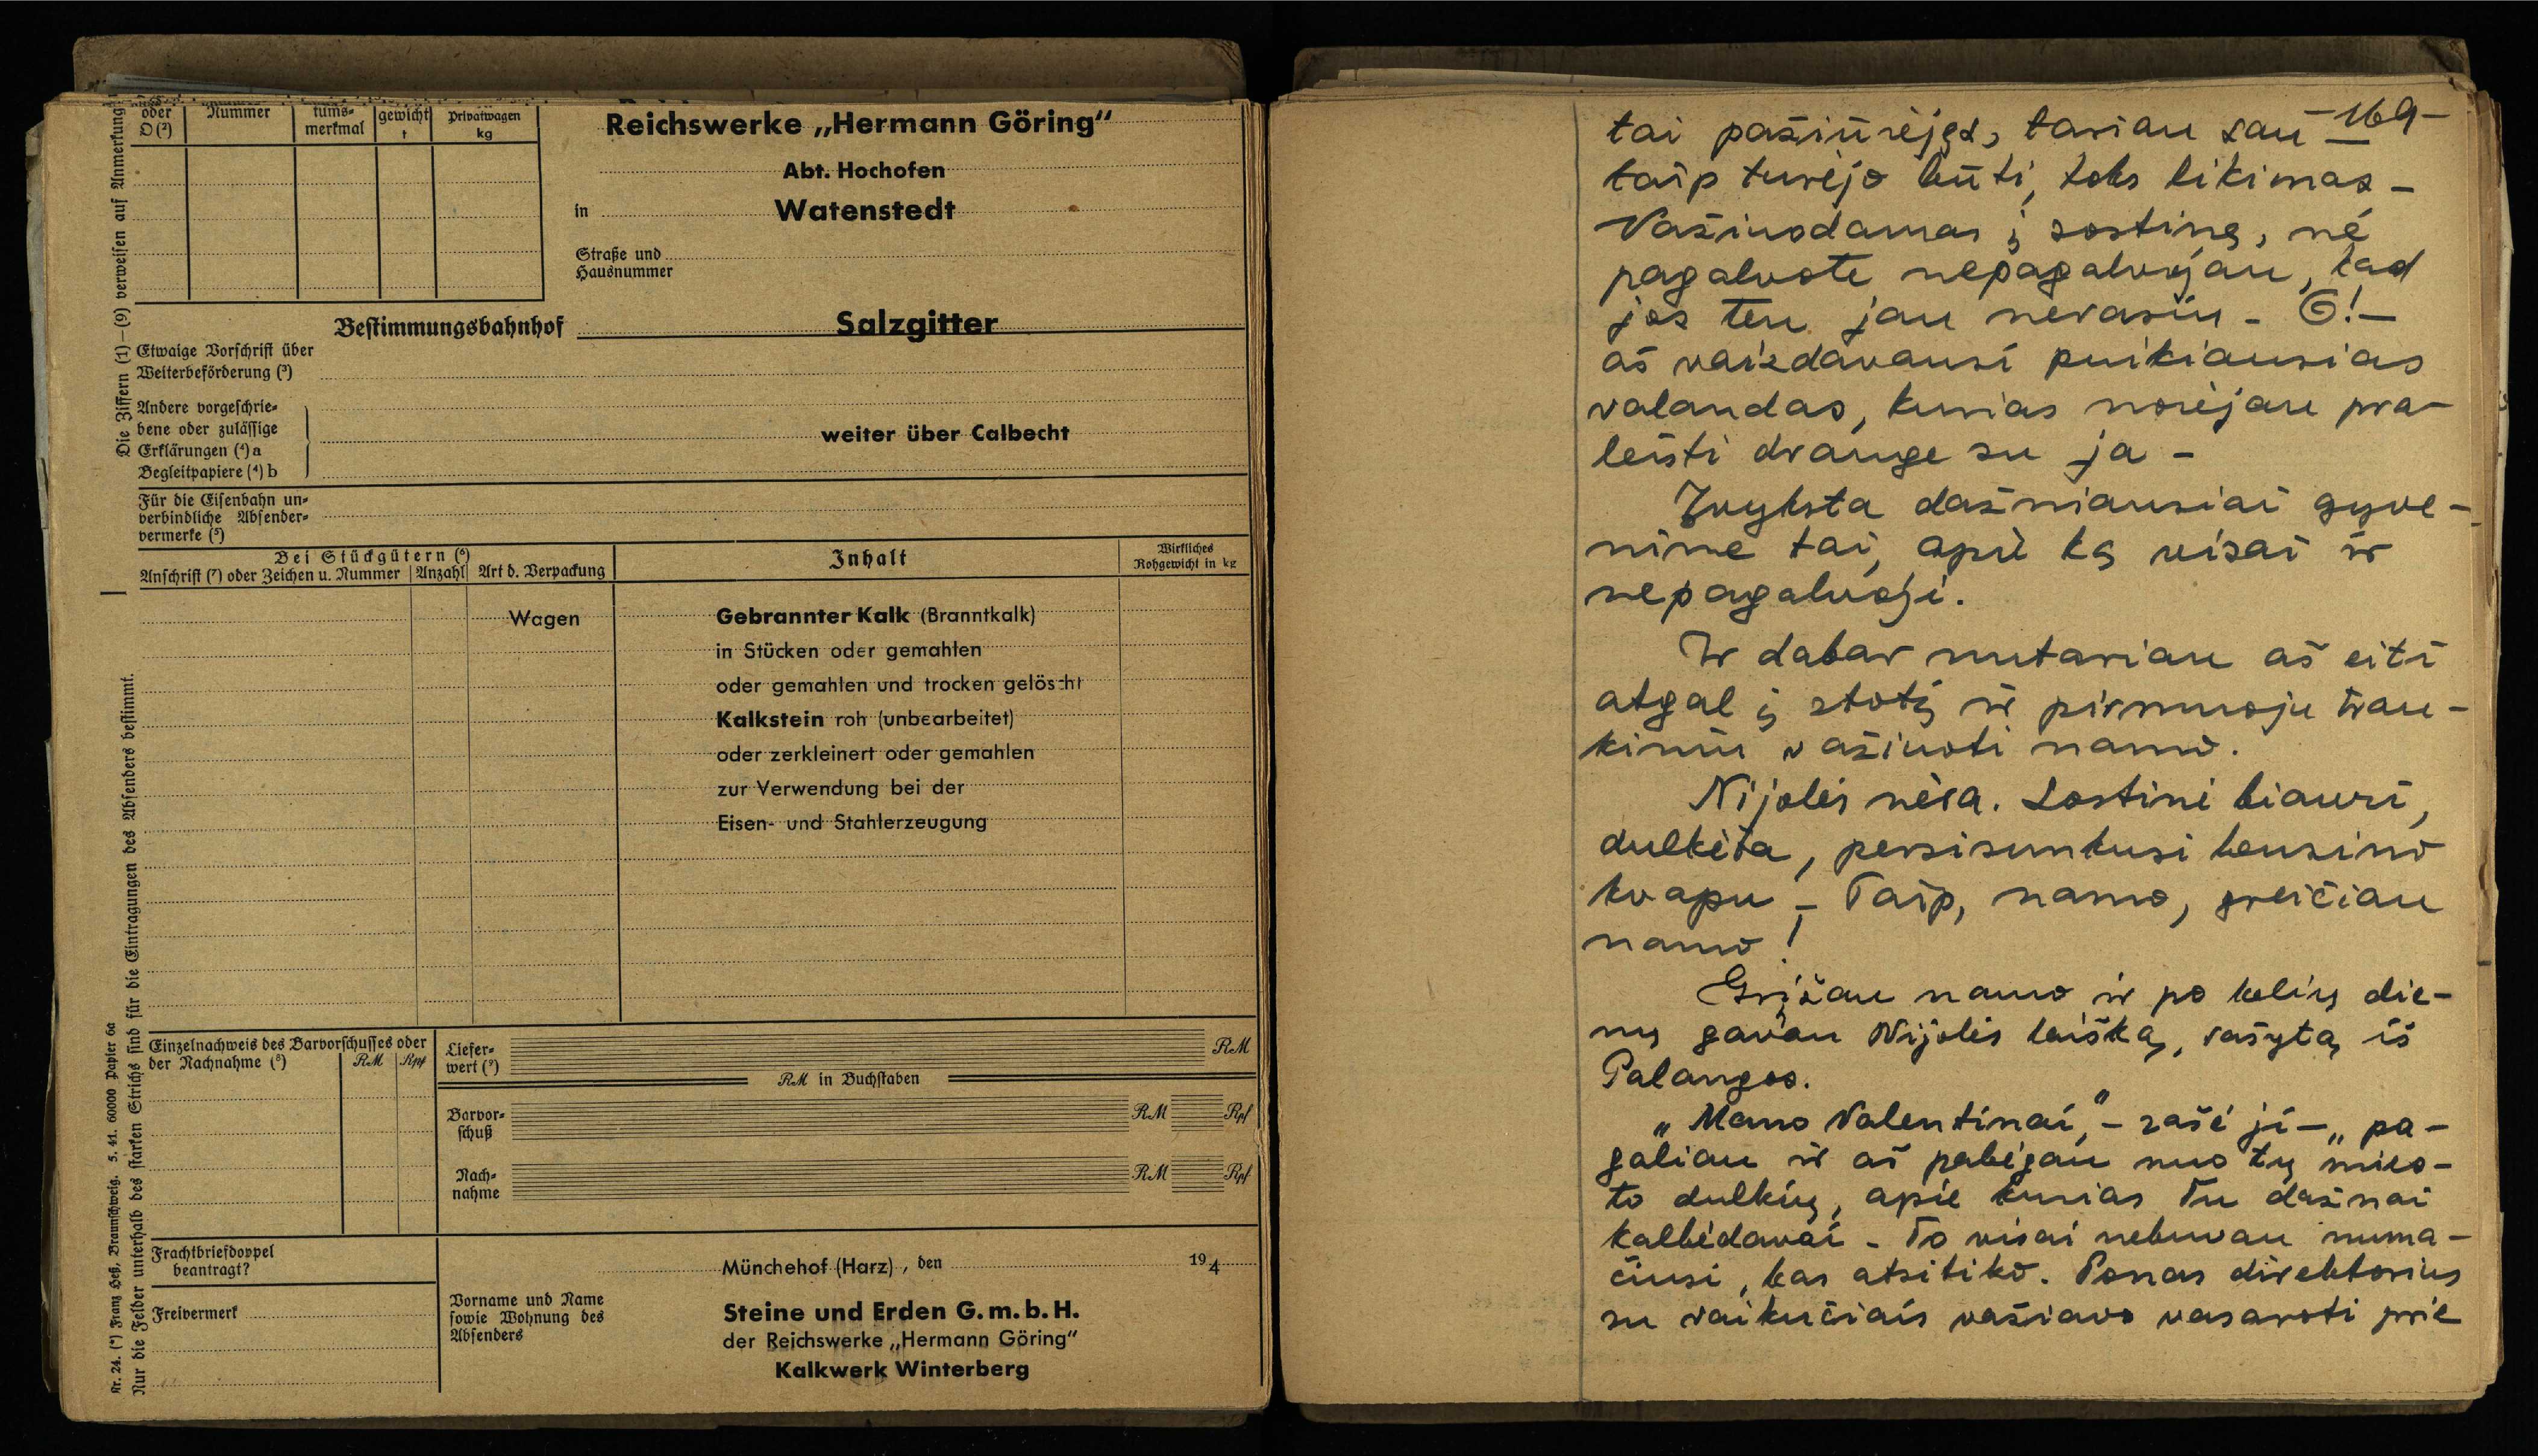 oder Nummer tums- gewicht Privatwagen
D (²) merkmal t kg
Reichswerke „Hermann Göring“
Abt. Hochofen
in Watenstedt
Straße und
Hausnummer
Bestimmungsbahnhof Salzgitter
Etwaige Vorschrift über
Weiterbeförderung (³)
Andere vorgeschrie-
bene oder zulässige
Erklärungen (⁴) a
Begleitpapiere (⁴) b
weiter über Calbecht
Für die Eisenbahn un-
verbindliche Absender-
vermerke (⁵)
Bei Stückgütern (⁶)
Anschrift (⁷) oder Zeichen u. Nummer Anzahl Art d. Verpackung
Inhalt
Wirkliches
Rohgewicht in kg
Wagen
Gebrannter Kalk (Branntkalk)
in Stücken oder gemahlen
oder gemahlen und trocken gelöscht
Kalkstein roh (unbearbeitet)
oder zerkleinert oder gemahlen
zur Verwendung bei der
Eisen- und Stahlerzeugung
Einzelnachweis des Barvorschusses oder
der Nachnahme (⁸) RM Rpf
Liefer-
wert (⁹) RM
RM in Buchstaben
Barvor-
schuß RM Rpf
Nach-
nahme RM Rpf
Frachtbriefdoppel
beantragt?
Freivermerk
Münchehof (Harz), den 194
Vorname und Name
sowie Wohnung des
Absenders
Steine und Erden G. m. b. H.
der Reichswerke „Hermann Göring“
Kalkwerk Winterberg
Die Ziffern (1)—(9) verweisen auf Anmerkung
Nur die Felder unterhalb des starken Strichs sind für die Eintragungen des Absenders bestimmt.
Nr. 24. (*) Franz Heß, Braunschweig. 5. 41. 60000 Papier 6a
-169-
tai pažiūrėjęs, tariau sau –
taip turėjo būti, toks likimas –
Važiuodamas į sostinę, nė
pagalvote nepagalvojau, kad
jos ten jau nerasiu – O! –
aš vaizdavausi puikiausias
valandas, kurias norėjau pra-
leisti drauge su ja –
Įvyksta dažniausiai gyve-
nime tai, apie ką visai ir
nepagalvoji.
Ir dabar nutariau aš eiti
atgal į stotį ir pirmuoju trau-
kiniu važiuoti namo.
Nijolės nėra. Sostinė biauri,
dulkėta, persisunkusi benzino
kvapu – Taip, namo, greičiau
namo!
Grįžau namo ir po kelių die-
nų gavau Nijolės laišką, rašytą iš
Palangos.
„Mano Valentinai,“ – rašė ji – „pa-
galiau ir aš pabėgau nuo tų mies-
to dulkių, apie kurias Tu dažnai
kalbėdavai – To visai nebuvau numa-
čiusi, kas atsitiko. Ponas direktorius
su vaikučiais važiavo vasaroti prie